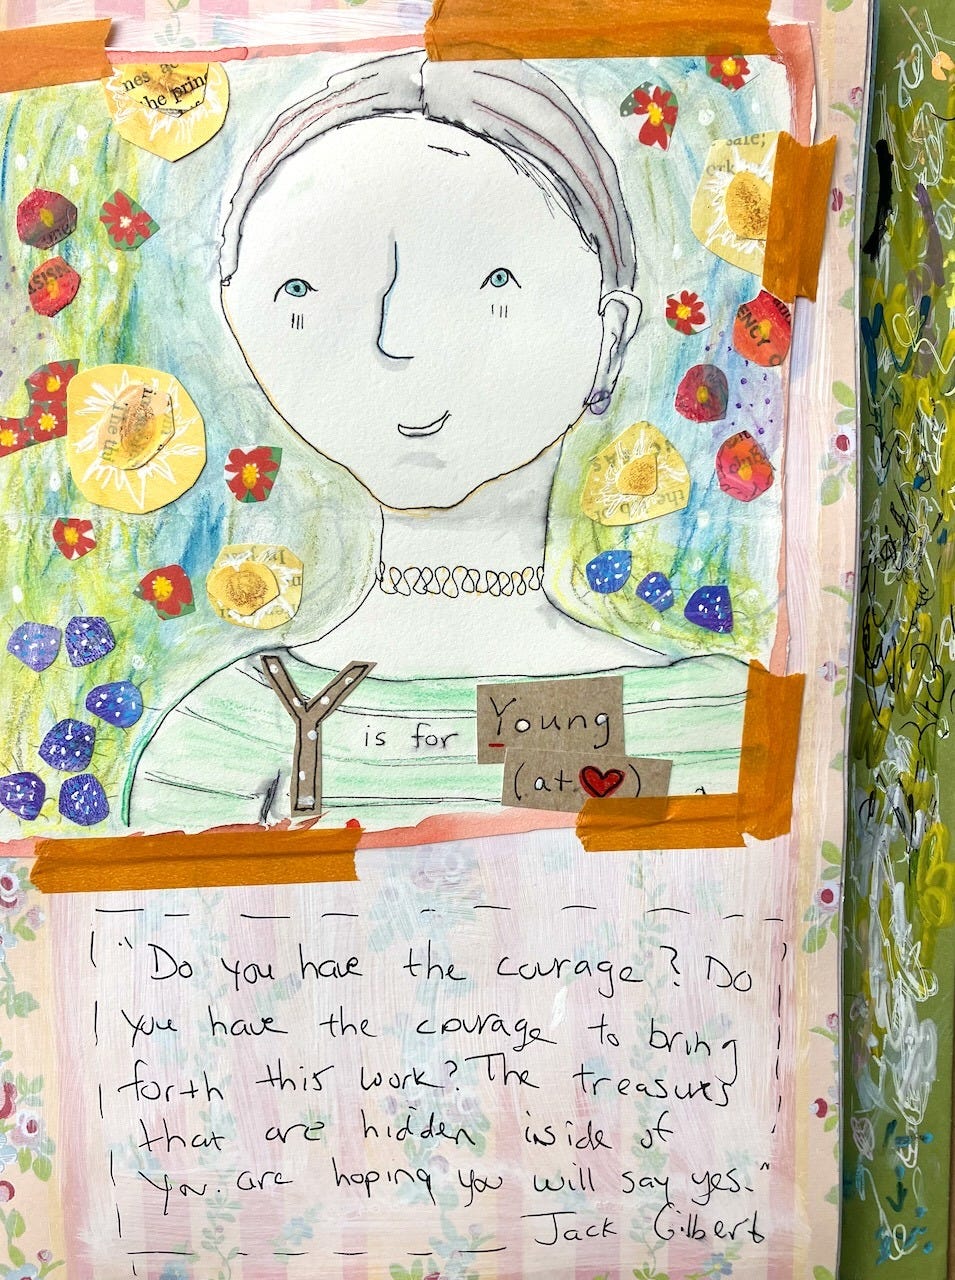 nes ac
he prin
sale,
ork
ASISM
ENCY
The tu
the
Y is for Young
(at ♥)
"Do you have the courage? Do
you have the courage to bring
forth this work? The treasures
that are hidden inside of
you are hoping you will say yes."
Jack Gilbert